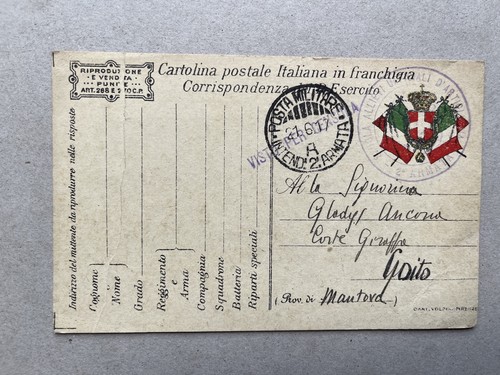 RIPRODUZIONE
E VENDITA
PUNITE
ART. 268 E 270 C.P.
Cartolina postale Italiana in franchigia
Corrispondenza Esercito
POSTA MILITARE
21.6.17
A
INTEND. 2ª ARMATA
VISTO PER
2ª ARMATA
Alla Signorina
Gladys Ancona
Corte Giraffa
Goito
(Prov. di Mantova)
Indirizzo del mittente da riprodurre nelle risposte
Cognome
Nome
Grado
Reggimento
e
Arma
Compagnia
Squadrone
Batteria
Riparti speciali